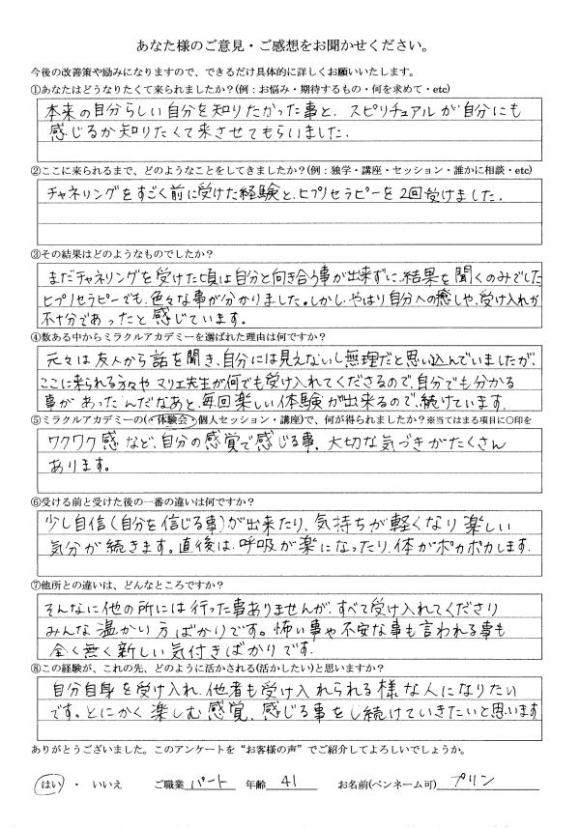 あなた様のご意見・ご感想をお聞かせください。
今後の改善策や励みになりますので、できるだけ具体的に詳しくお願いいたします。
①あなたはどうなりたくて来られましたか?(例：お悩み・期待するもの・何を求めて・etc)
本来の自分らしい自分を知りたかった事と、スピリチュアルが自分にも
感じるか知りたくて来させてもらいました。
②ここに来られるまで、どのようなことをしてきましたか?(例：独学・講座・セッション・誰かに相談・etc)
チャネリングをすごく前に受けた経験と、ヒプノセラピーを2回受けました。
③その結果はどのようなものでしたか?
まだチャネリングを受けた頃は自分と向き合う事が出来ずに、結果を聞くのみでした
ヒプノセラピーでも、色々な事が分かりました。しかし、やはり自分への癒しや、受け入れが
不十分であったと感じています。
④数ある中からミラクルアカデミーを選ばれた理由は何ですか?
元々は友人から話を聞き、自分には見えないし無理だと思い込んでいましたが、
ここに来られる方々やマリエ先生が何でも受け入れてくださるので、自分でも分かる
事があったんだなあと、毎回楽しい体験が出来るので、続けています。
⑤ミラクルアカデミーの(・体験会・個人セッション・講座)で、何が得られましたか?※当てはまる項目に○印を
ワクワク感など、自分の感覚で感じる事、大切な気づきがたくさん
あります。
⑥受ける前と受けた後の一番の違いは何ですか?
少し自信(自分を信じる事)が出来たり、気持ちが軽くなり楽しい
気分が続きます。直後は、呼吸が楽になったり、体がポカポカします。
⑦他所との違いは、どんなところですか?
そんなに他の所には行った事ありませんが、すべて受け入れてくださり
みんな温かい方ばかりです。怖い事や不安な事も言われる事も
全く無く新しい気付きばかりです。
⑧この経験が、これの先、どのように活かされる(活かしたい)と思いますか?
自分自身を受け入れ、他者も受け入れられる様な人になりたい
です。とにかく楽しむ感覚、感じる事をし続けていきたいと思います
ありがとうございました。このアンケートを“お客様の声”でご紹介してよろしいでしょうか。
はい ・ いいえ ご職業 パート 年齢 41 お名前(ペンネーム可) プリン